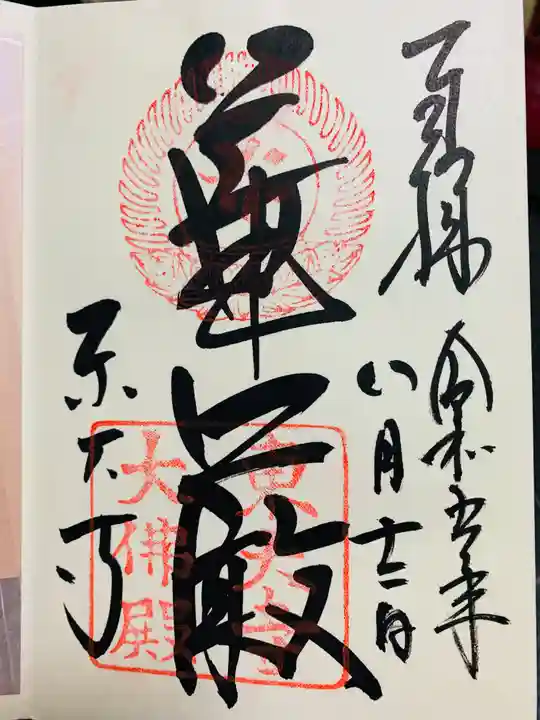 奉拝
令和五年
八月十二日
華厳
東大寺
大佛殿
東大寺